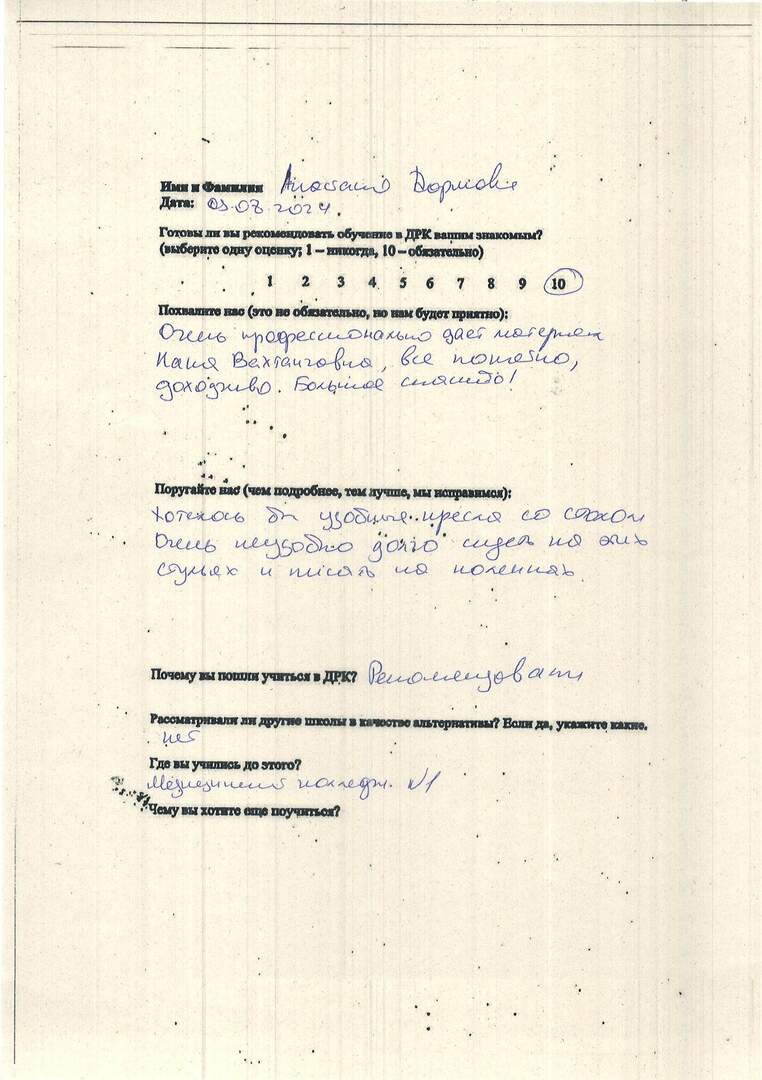 Имя и Фамилия Анастасия
Дата: 03.07.2024.
Готовы ли вы рекомендовать обучение в ДРК вашим знакомым?
(выберите одну оценку; 1 – никогда, 10 – обязательно)
1 2 3 4 5 6 7 8 9 10
Похвалите нас (это не обязательно, но нам будет приятно):
Очень профессионально дает материал
Вахтанговна, все понятно,
доходчиво. Большое спасибо!
Поругайте нас (чем подробнее, тем лучше, мы исправимся):
Хотелось бы удобные кресла со столом
Очень неудобно долго сидеть на этих
стульях и писать на коленках.
Почему вы пошли учиться в ДРК? Рекомендовали
Рассматривали ли другие школы в качестве альтернативы? Если да, укажите какие.
нет
Где вы учились до этого?
Медицинский колледж. №1
Чему вы хотите еще поучиться?